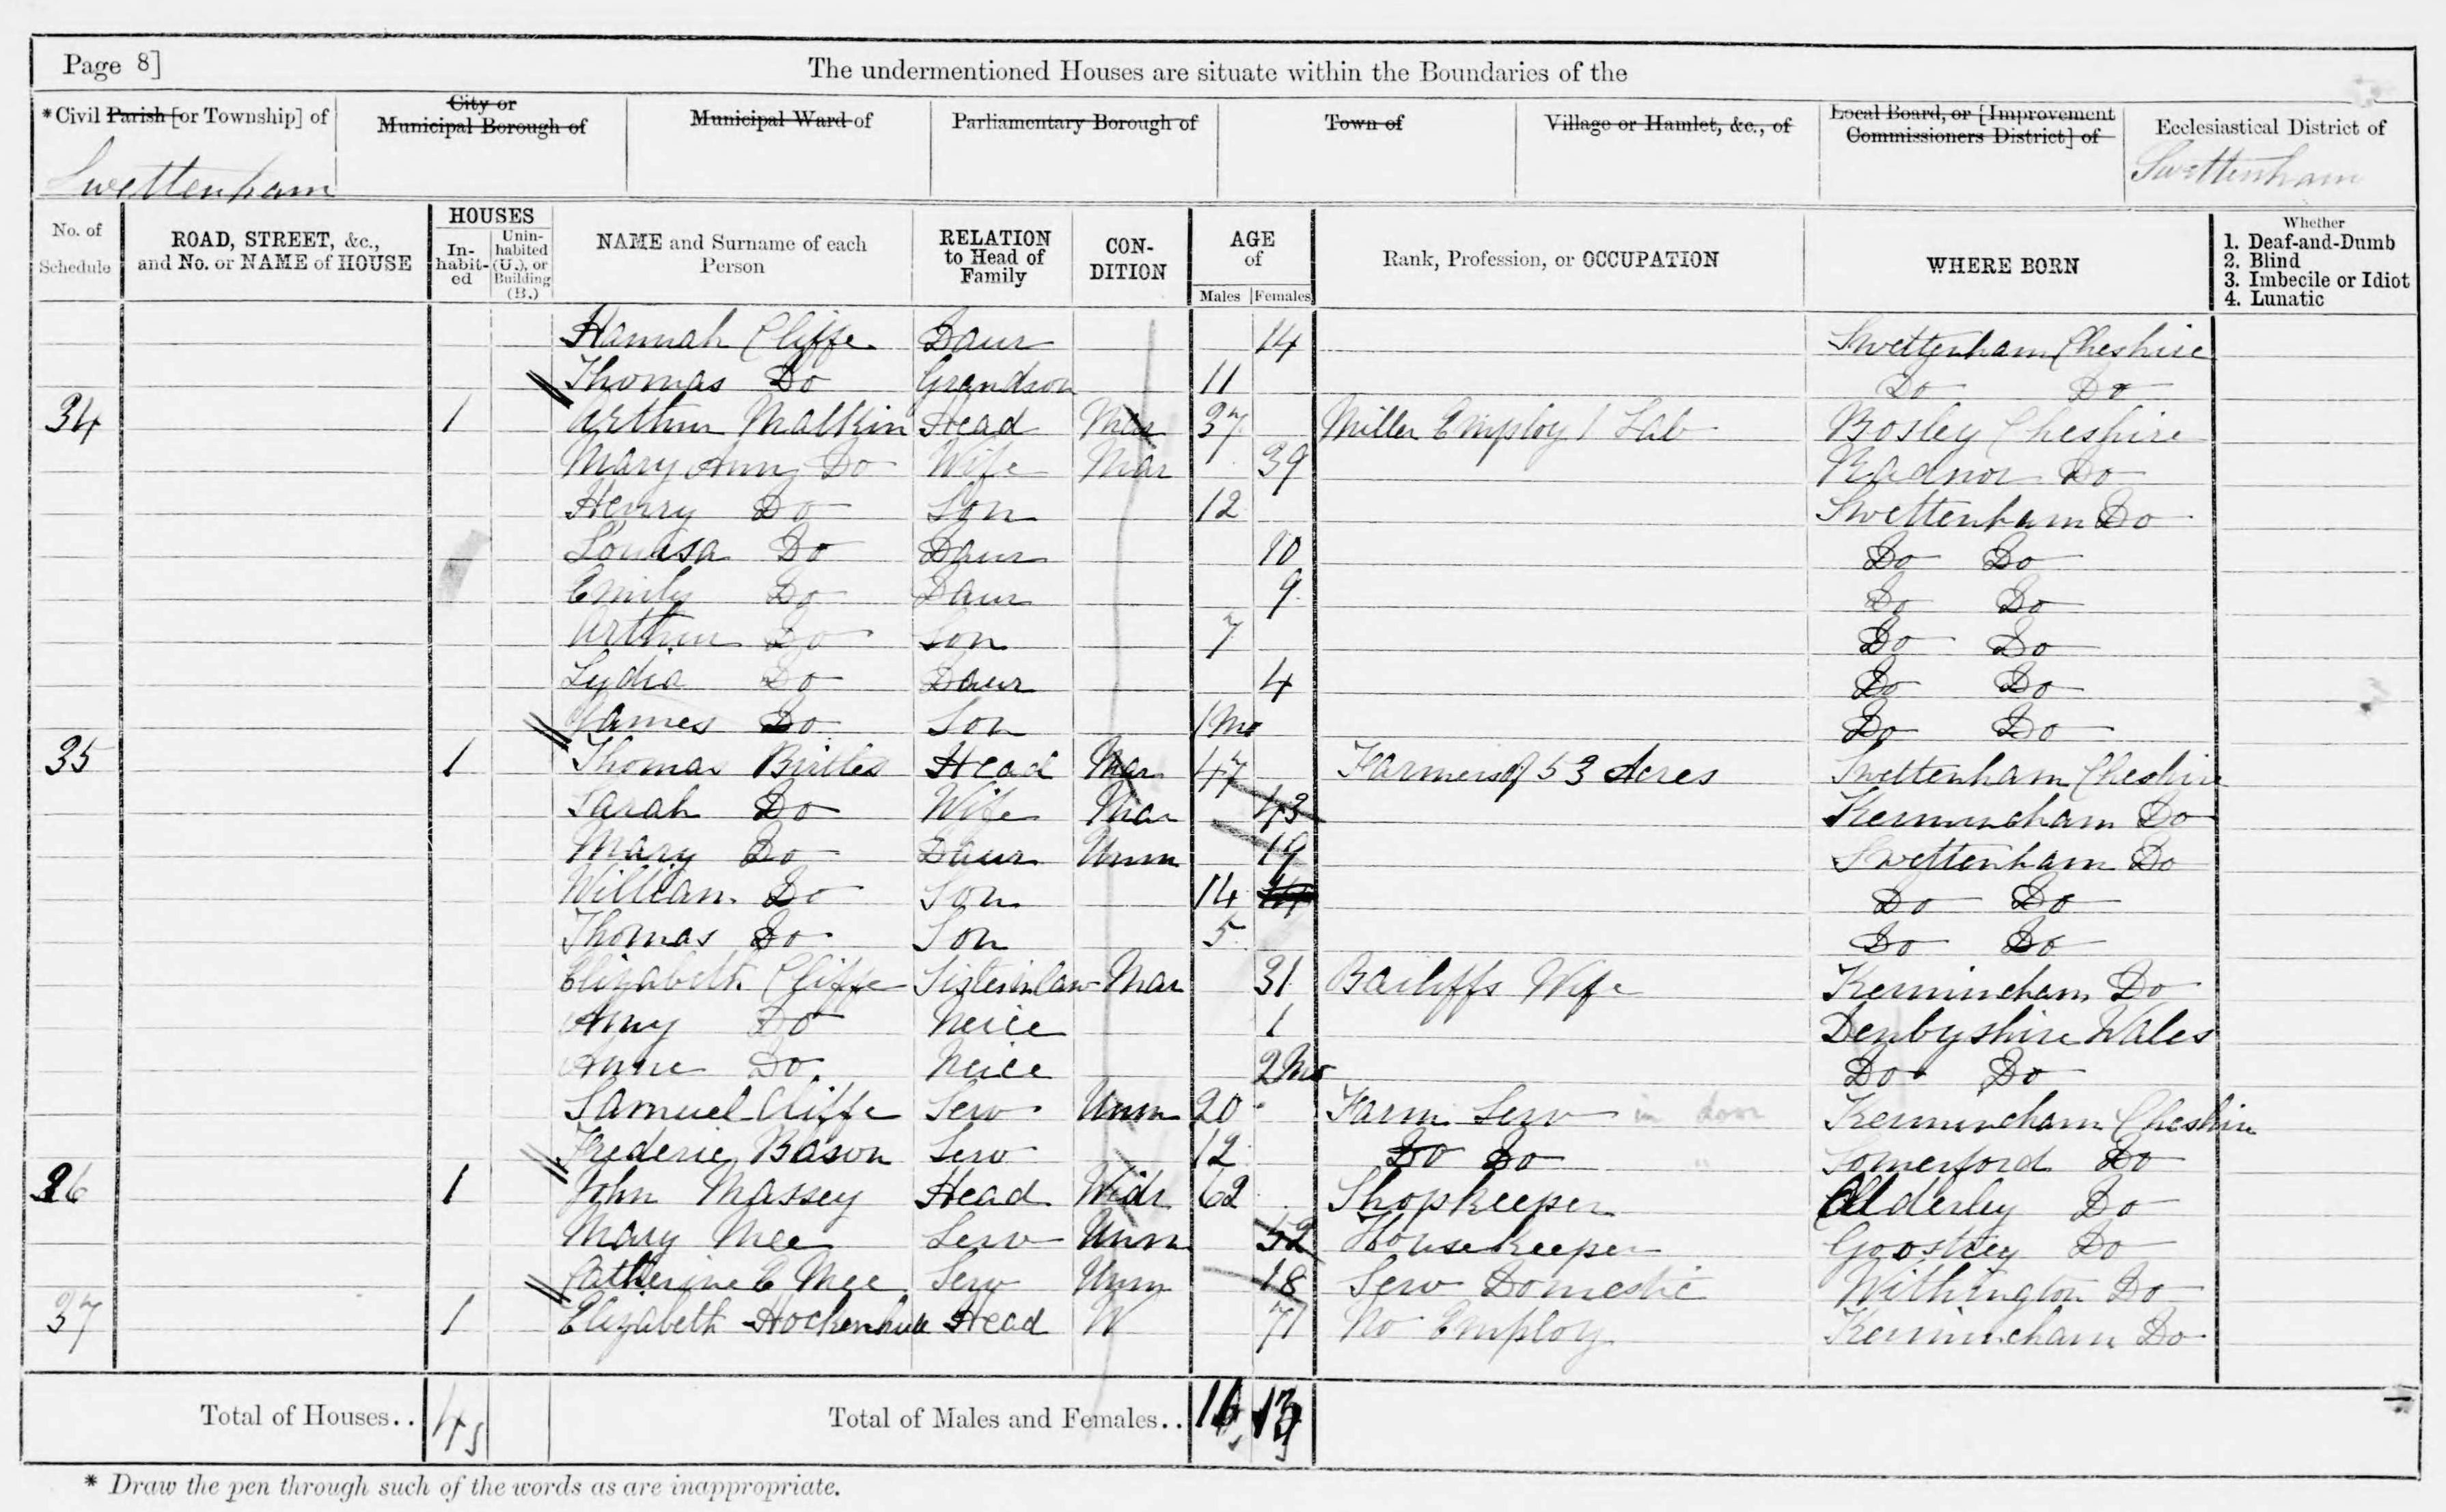 Page 8]
The undermentioned Houses are situate within the Boundaries of the
*Civil Parish [or Township] of
City or Municipal Borough of
Municipal Ward of
Parliamentary Borough of
Town of
Village or Hamlet, &c., of
Local Board, or [Improvement Commissioners District] of
Ecclesiastical District of
Swettenham
Swettenham
No. of Schedule
ROAD, STREET, &c., and No. or NAME of HOUSE
HOUSES
In-habit-ed
Unin-habited (U.), or Building (B.)
NAME and Surname of each Person
RELATION to Head of Family
CON-DITION
AGE of
Males Females
Rank, Profession, or OCCUPATION
WHERE BORN
Whether
1. Deaf-and-Dumb
2. Blind
3. Imbecile or Idiot
4. Lunatic
Hannah Cliffe Daur 14 Swettenham Cheshire
Thomas Do Grandson 11 Do Do
34 1 Arthur Malkin Head Mar 37 Miller Employ 1 Lab Bosley Cheshire
Mary Ann Do Wife Mar 39 Radnor Do
Henry Do Son 12 Swettenham Do
Louisa Do Daur 10 Do Do
Emily Do Daur 9 Do Do
Arthur Do Son 7 Do Do
Lydia Do Daur 4 Do Do
James Do Son 1 Mo Do Do
35 1 Thomas Birtles Head Mar 47 Farmer of 53 Acres Swettenham Cheshire
Sarah Do Wife Mar 43 Kermincham Do
Mary Do Daur Unm 19 Swettenham Do
William Do Son 14 Do Do
Thomas Do Son 5 Do Do
Elizabeth Cliffe Sister in law Mar 31 Bailiffs Wife Kermincham Do
Amy Do Neice 1 Denbyshire Wales
Annie Do Neice 2 Mo Do Do
Samuel Cliffe Serv Unm 20 Farm Serv in door Kermincham Cheshire
Frederic Bason Serv 12 Do Do " Somerford Do
36 1 John Massey Head Widr 62 Shopkeeper Alderley Do
Mary Mee Serv Unm 52 Housekeeper Goostrey Do
Catherine E Mee Serv Unm 18 Serv Domestic Withington Do
37 1 Elizabeth Hockenhull Head W 71 No Employ Kermincham Do
Total of Houses.. 4
Total of Males and Females..
* Draw the pen through such of the words as are inappropriate.